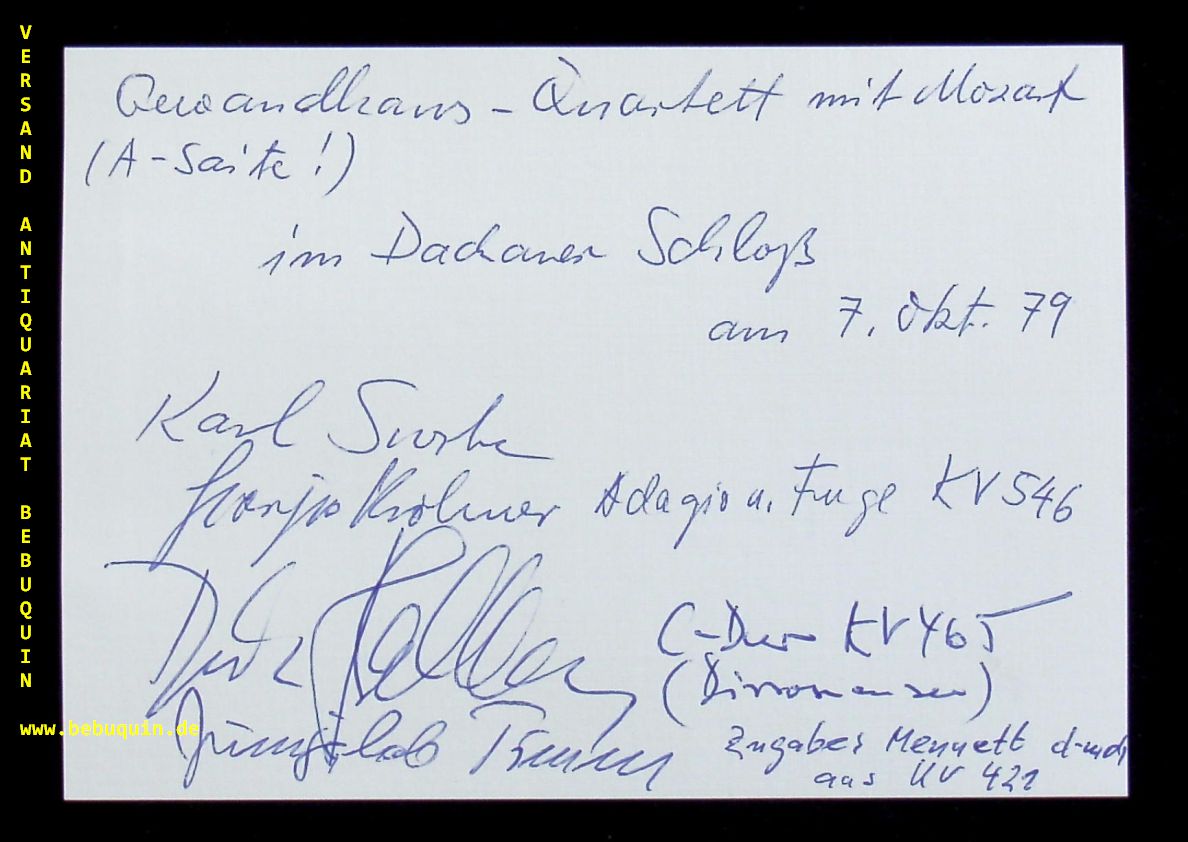 VERSAND ANTIQUARIAT BEBUQUIN
www.bebuquin.de
Gewandhaus-Quartett mit Mozart
(A-Saite!)
im Dachauer Schloß
am 7. Okt. 79
Karl Suske
Giorgio Kröhner Adagio u. Fuge KV 546
C-Dur KV 465
(Dissonanzen)
Jürnjakob Timm
Zugabe: Menuett d-moll
aus KV 421